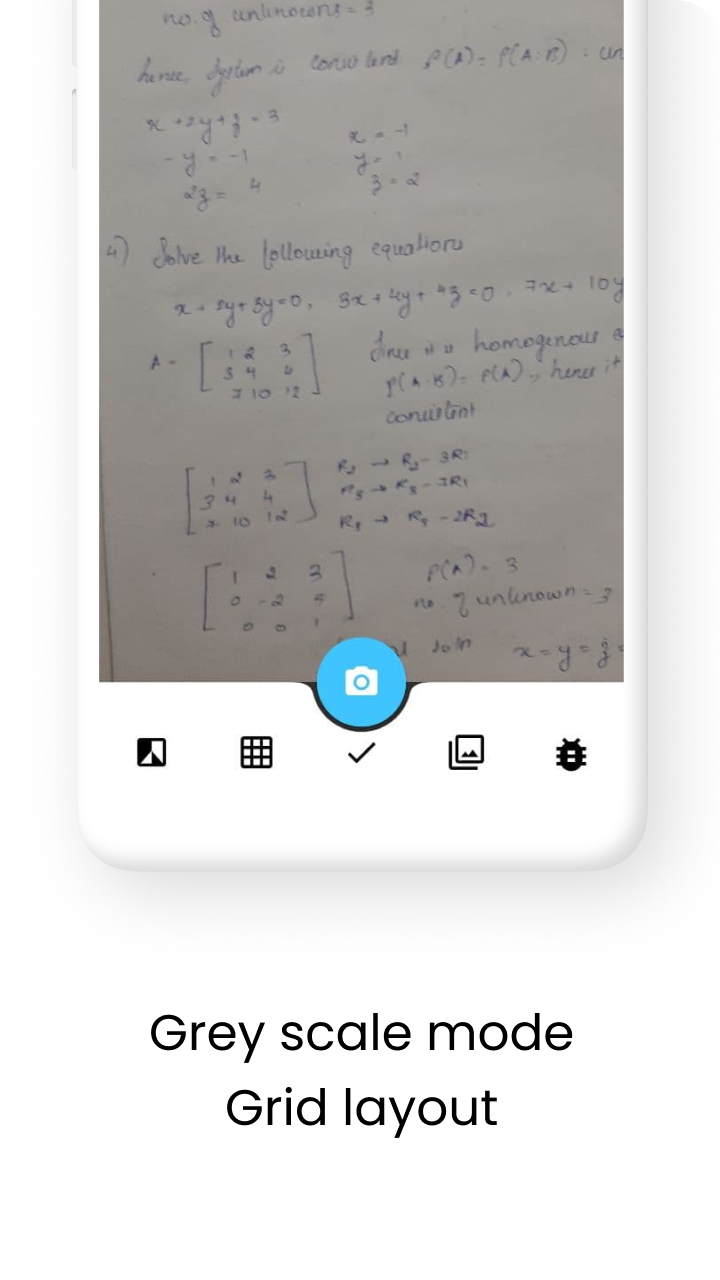 no. of unknowns = 3
hence, system is consistent ρ(A) = ρ(A:B) : un
x + 2y + z = 3
- y = -1
2z = 4
x = -1
y = 1
z = 2
4) Solve the following equations
x + 2y + 3y = 0, 3x + 4y + 4z = 0, 7x + 10y
A = 1 2 3
3 4 4
7 10 12
Since it is homogenous
ρ(A:B) = ρ(A) ., hence it
consistent
1 2 3
3 4 4
7 10 12
R2 → R2 - 3R1
R3 → R3 - 7R1
R3 → R3 - 2R2
1 2 3
0 -2 5
0 0 1
ρ(A) = 3
no. of unknown = 3
soln x = y = z =
Grey scale mode
Grid layout